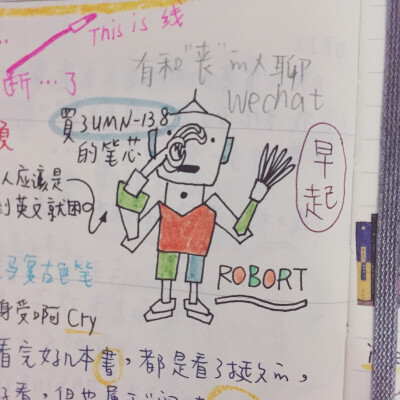 This is 线
断…了
有和"丧"的人聊
wechat
買了UMN-138
的笔芯
早起
人应該是
到英文就困
ROBORT
马复古色笔
身受啊 Cry
看完好几本書,都是看了挺久的,